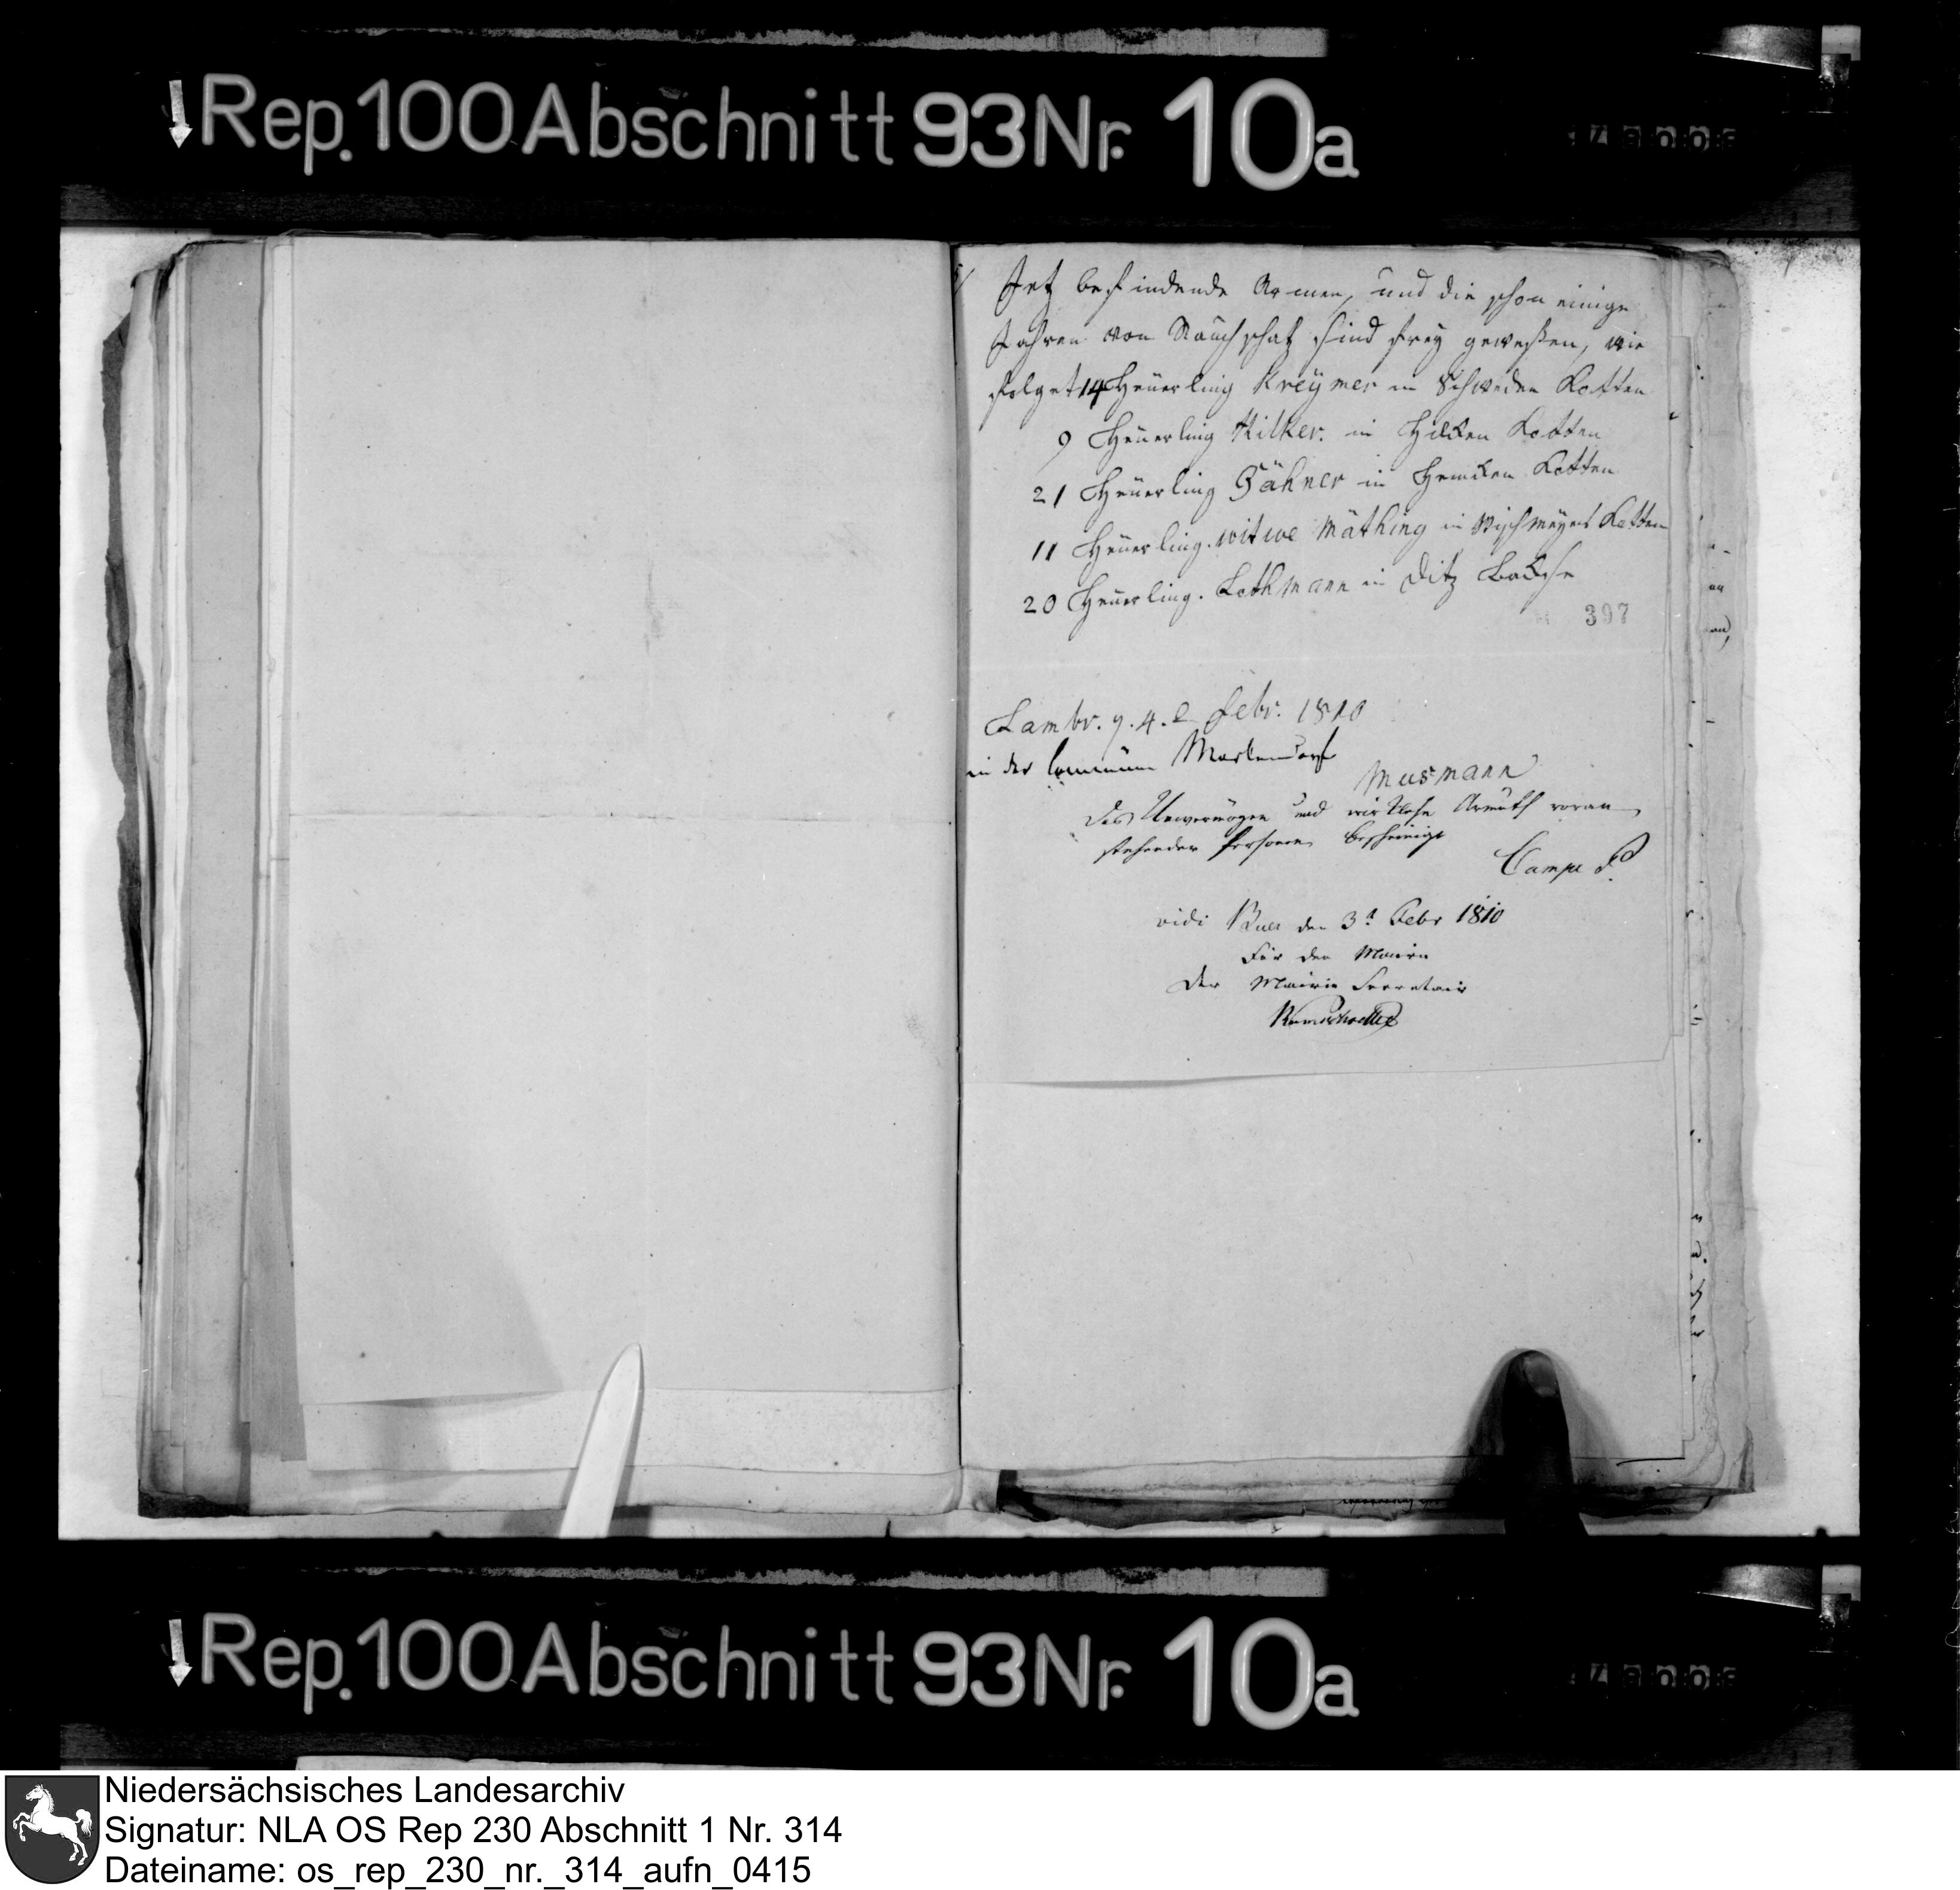 Rep. 100 Abschnitt 93 Nr. 10a
Jetz befindende Armen, und die schon einige
Jahren von Rauchschatz sind frey geweßen, wie
folget 14 Heuerling Kreymer in Schweden Kotten
9 Heuerling Hilker. in Hilken Kotten
21 Heuerling Gähner in Hemken Kotten
11 Heuerling. witwe Mäthing in Wischmeyers Kotten
20 Heuerling. Lothmann in Ditz
397
Lambr. 4. Febr. 1810
in der Commune Markendorf
Musmann
Das Unvermögen und wirkliche Armuth voran
stehender Personen bescheinigt
Campe P.
vidi Buer den 3t Febr 1810
Für den Mairen
Der Mairie Secretair
Rep. 100 Abschnitt 93 Nr. 10a
Niedersächsisches Landesarchiv
Signatur: NLA OS Rep 230 Abschnitt 1 Nr. 314
Dateiname: os_rep_230_nr._314_aufn_0415